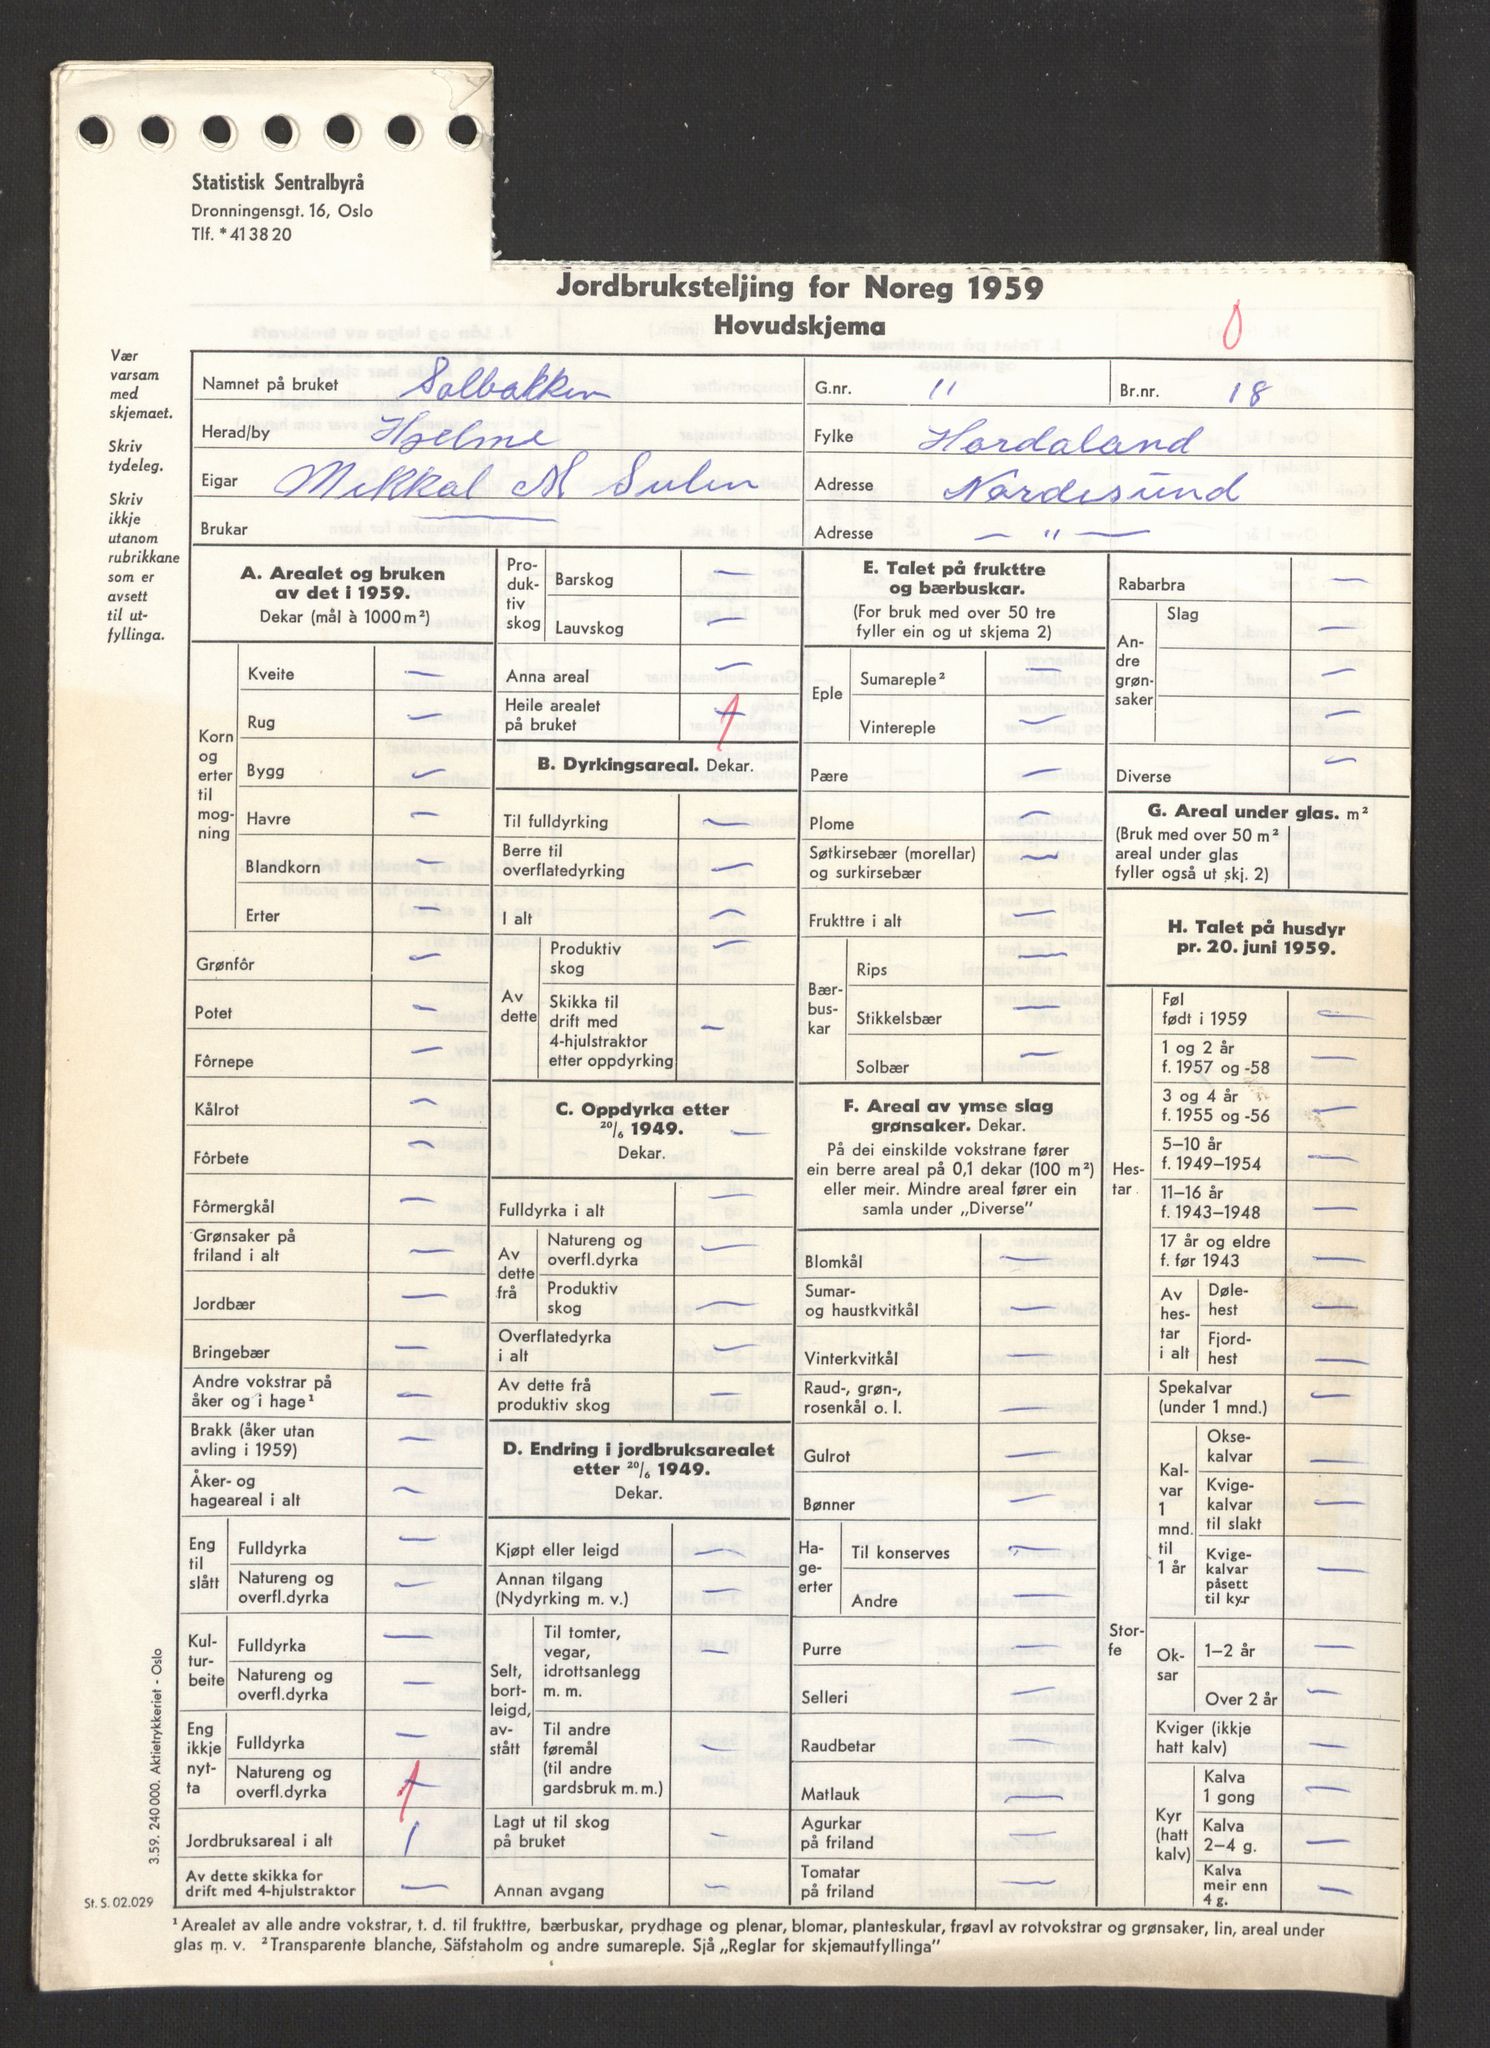 Statistisk Sentralbyrå
Dronningensgt. 16, Oslo
Tlf. *41 38 20
Jordbruksteljing for Noreg 1959
Hovudskjema
0
Vær
varsam
med
skjemaet.
Skriv
tydeleg.
Skriv
ikkje
utanom
rubrikkane
som er
avsett
til ut-
fyllinga.
Namnet på bruket Solbakken G.nr. " Br.nr. 18
Herad/by Hjelme Fylke Hordaland
Eigar Mikkal M Sulen Adresse Nordisund
Brukar — Adresse — " —
A. Arealet og bruken
av det i 1959.
Dekar (mål à 1000 m²)
Korn
og
erter
til
mog-
ning
Kveite —
Rug —
Bygg —
Havre —
Blandkorn —
Erter —
Grønfôr —
Potet —
Fôrnepe —
Kålrot —
Fôrbete —
Fôrmergkål —
Grønsaker på
friland i alt —
Jordbær —
Bringebær —
Andre vokstrar på
åker og i hage¹ —
Brakk (åker utan
avling i 1959) —
Åker- og
hageareal i alt —
Eng
til
slått
Fulldyrka —
Natureng og
overfl.dyrka —
Kul-
tur-
beite
Fulldyrka —
Natureng og
overfl.dyrka —
Eng
ikkje
nyt-
ta
Fulldyrka —
Natureng og
overfl.dyrka 1
Jordbruksareal i alt 1
Av dette skikka for
drift med 4-hjulstraktor —
Pro-
duk-
tiv
skog
Barskog —
Lauvskog —
Anna areal —
Heile arealet
på bruket 1
B. Dyrkingsareal. Dekar.
Til fulldyrking —
Berre til
overflatedyrking —
I alt —
Av
dette
Produktiv
skog —
Skikka til
drift med
4-hjulstraktor
etter oppdyrking —
C. Oppdyrka etter
20/6 1949. —
Dekar.
Fulldyrka i alt —
Av
dette
frå
Natureng og
overfl.dyrka —
Produktiv
skog —
Overflatedyrka
i alt —
Av dette frå
produktiv skog —
D. Endring i jordbruksarealet
etter 20/6 1949.
Dekar.
Kjøpt eller leigd —
Annan tilgang
(Nydyrking m. v.) —
Selt,
bort-
leigd,
av-
stått
Til tomter,
vegar,
idrottsanlegg
m. m. —
Til andre
føremål
(til andre
gardsbruk m.m.) —
Lagt ut til skog
på bruket —
Annan avgang —
E. Talet på frukttre
og bærbuskar.
(For bruk med over 50 tre
fyller ein og ut skjema 2)
Eple
Sumareple² —
Vintereple —
Pære —
Plome —
Søtkirsebær (morellar)
og surkirsebær —
Frukttre i alt —
Bær-
bus-
kar
Rips —
Stikkelsbær —
Solbær —
F. Areal av ymse slag
grønsaker. Dekar.
På dei einskilde vokstrane fører
ein berre areal på 0,1 dekar (100 m²)
eller meir. Mindre areal fører ein
samla under „Diverse”
Blomkål —
Sumar-
og haustkvitkål —
Vinterkvitkål —
Raud-, grøn-,
rosenkål o. l. —
Gulrot —
Bønner —
Ha-
ge-
erter
Til konserves —
Andre —
Purre —
Selleri —
Raudbetar —
Matlauk —
Agurkar
på friland —
Tomatar
på friland —
Rabarbra —
An-
dre
grøn-
saker
Slag —
—
—
Diverse —
G. Areal under glas. m²
(Bruk med over 50 m²
areal under glas
fyller også ut skj. 2)
H. Talet på husdyr
pr. 20. juni 1959.
Hes-
tar
Føl
født i 1959 —
1 og 2 år
f. 1957 og -58 —
3 og 4 år
f. 1955 og -56 —
5–10 år
f. 1949–1954 —
11–16 år
f. 1943–1948 —
17 år og eldre
f. før 1943 —
Av
hes-
tar
i alt
Døle-
hest —
Fjord-
hest —
Stor-
fe
Spekalvar
(under 1 mnd.) —
Kal-
var
1
mnd.
til
1 år
Okse-
kalvar —
Kvige-
kalvar
til slakt —
Kvige-
kalvar
påsett
til kyr —
Ok-
sar
1–2 år —
Over 2 år —
Kviger (ikkje
hatt kalv) —
Kyr
(hatt
kalv)
Kalva
1 gong —
Kalva
2–4 g. —
Kalva
meir enn
4 g. —
3.59. 240 000. Aktietrykkeriet - Oslo
St. S. 02.029
¹ Arealet av alle andre vokstrar, t. d. til frukttre, bærbuskar, prydhage og plenar, blomar, planteskular, frøavl av rotvokstrar og grønsaker, lin, areal under
glas m. v. ² Transparente blanche, Säfstaholm og andre sumareple. Sjå „Reglar for skjemautfyllinga”